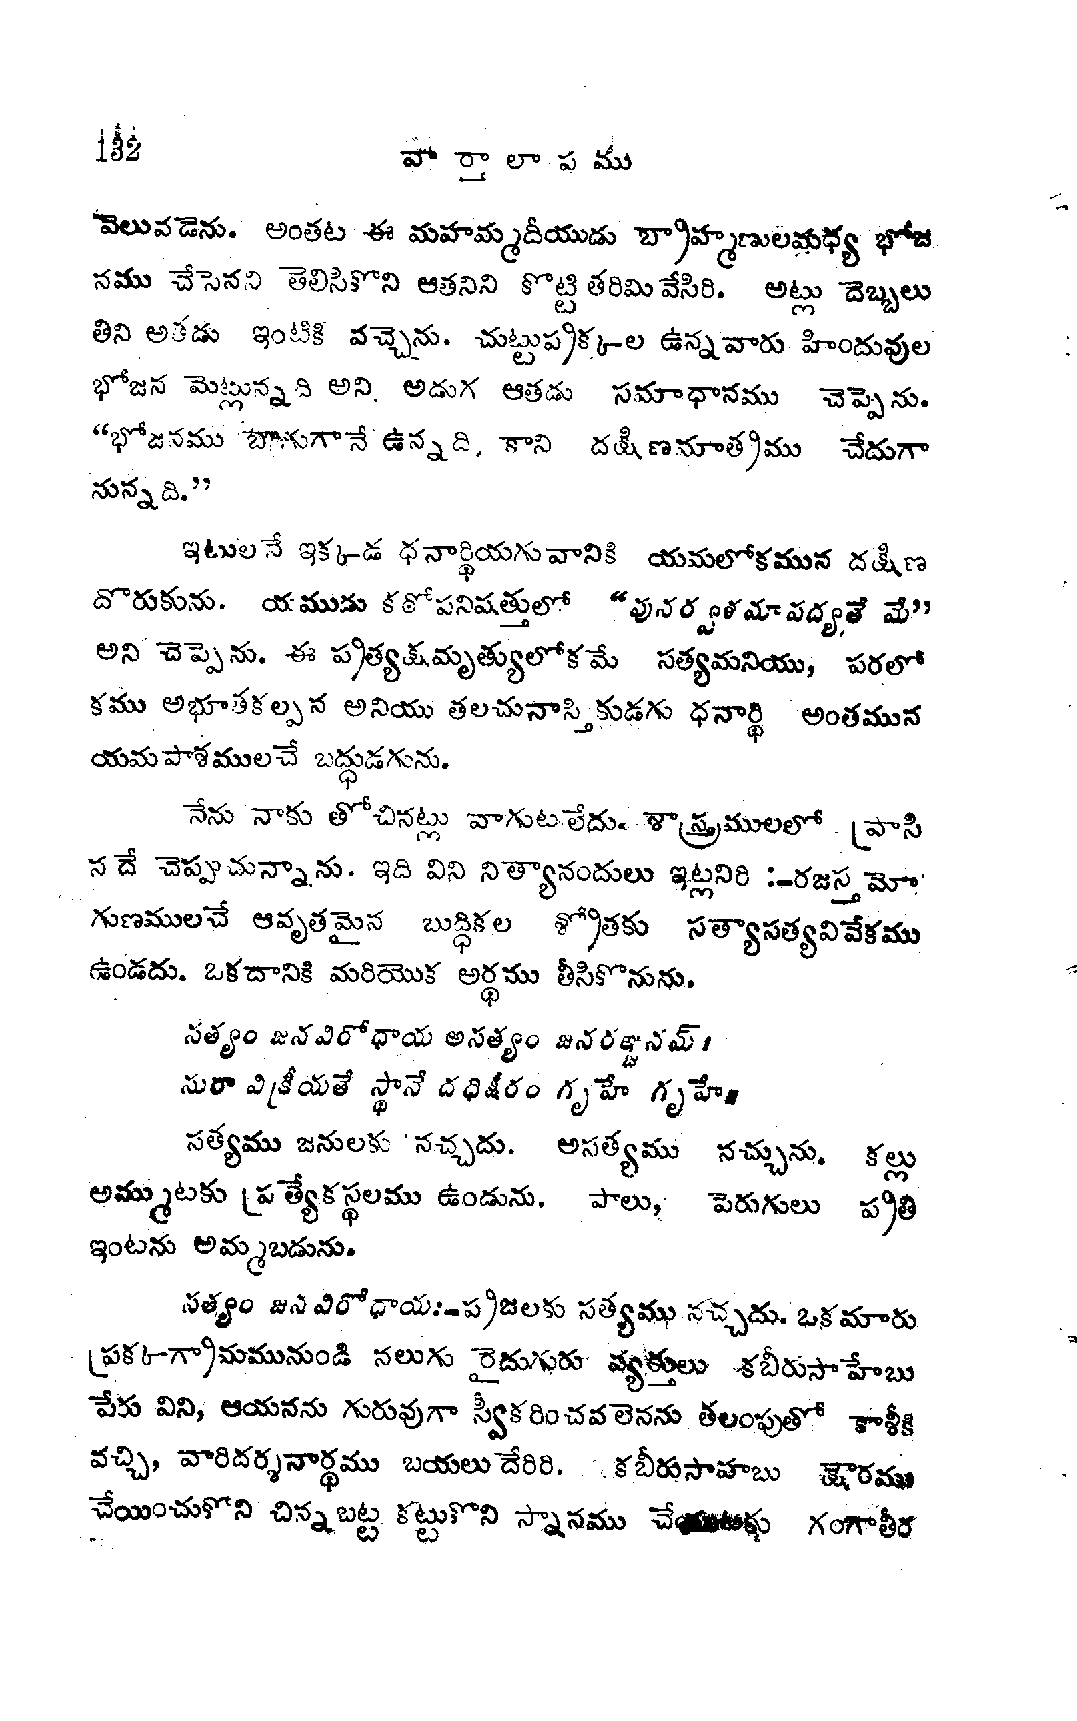 132
వార్తాలాపము
వెలువడెను. అంతట ఈ మహమ్మదీయుడు బ్రాహ్మణులమధ్య భోజ
నము చేసెనని తెలిసికొని ఆతనిని కొట్టి తరిమి వేసిరి. అట్లు దెబ్బలు
తిని అతడు ఇంటికి వచ్చెను. చుట్టుప్రక్కల ఉన్నవారు హిందువుల
భోజన మెట్లున్నది అని అడుగ ఆతడు సమాధానము చెప్పెను.
“భోజనము బాగుగానే ఉన్నది, కాని దక్షిణమాత్రము చేదుగా
నున్నది.”
ఇటులనే ఇక్కడ ధనార్థియగువానికి యమలోకమున దక్షిణ
దొరుకును. యముడు కఠోపనిషత్తులో “పునర్వశమాపద్యతే మే”
అని చెప్పెను. ఈ ప్రత్యక్షమృత్యులోకమే సత్యమనియు, పరలో
కము అభూతకల్పన అనియు తలచునాస్తికుడగు ధనార్థి అంతమున
యమపాశములచే బద్ధుడగును.
నేను నాకు తోచినట్లు వాగుటలేదు. శాస్త్రములలో వ్రాసి
నదే చెప్పుచున్నాను. ఇది విని నిత్యానందులు ఇట్లనిరి :-రజస్తమో
గుణములచే ఆవృతమైన బుద్ధికల శ్రోతకు సత్యాసత్యవివేకము
ఉండదు. ఒకదానికి మరియొక అర్థము తీసికొనును.
సత్యం జనవిరోధాయ అసత్యం జనరఞ్జనమ్।
సురా విక్రీయతే స్థానే దధిక్షీరం గృహే గృహే॥
సత్యము జనులకు నచ్చదు. అసత్యము నచ్చును. కల్లు
అమ్ముటకు ప్రత్యేకస్థలము ఉండును. పాలు, పెరుగులు ప్రతి
ఇంటను అమ్మబడును.
సత్యం జనవిరోధాయ:-ప్రజలకు సత్యము నచ్చదు. ఒకమారు
ప్రక్కగ్రామమునుండి నలుగు రైదుగురు వ్యక్తులు కబీరుసాహేబు
పేరు విని, ఆయనను గురువుగా స్వీకరించవలెనను తలంపుతో కాశీకి
వచ్చి, వారిదర్శనార్థము బయలుదేరిరి. కబీరుసాహబు క్షౌరము
చేయించుకొని చిన్నబట్ట కట్టుకొని స్నానము చేయుటకు గంగాతీర